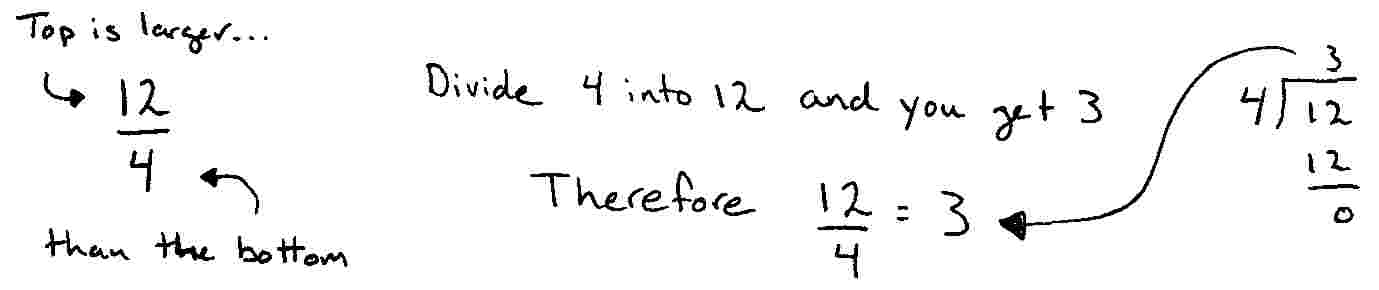 Top is larger...
12
4
than the bottom
Divide 4 into 12 and you get 3
Therefore 12/4 = 3
3
4)12
12
0